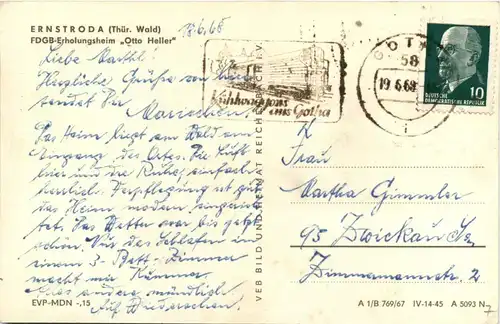 ERNSTRODA (Thür. Wald)
FDGB-Erholungsheim „Otto Heller"
18.6.68
Liebe Marthl!
Herzliche Grüße von hier
sendet Dir
Mariechen.
Das Heim liegt am Wald am
Eingang des Ortes. Die Luft
hier und die Ruhe, einfach
herrlich. Verpflegung ist gut
das Heim modern eingerich-
tet. Das Wetter war bis jetzt
schön. Nur das Schlafen im
einem 3-Bett-Zimmer
macht mir Kummer.
Alles andere mündlich.
Auf Wiedersehen!
EVP-MDN -,15
VEB BILD UND HEIMAT REICHENBACH I. V.
Kühlwaggons
aus Gotha
GOTHA
58
19.6.68
DEUTSCHE
DEMOKRATISCHE REPUBLIK
10
Frau
Martha Gimmler
95 Zwickau/Sa.
Zimmermannstr. 2
A 1/B 769/67 IV-14-45 A 5093 N